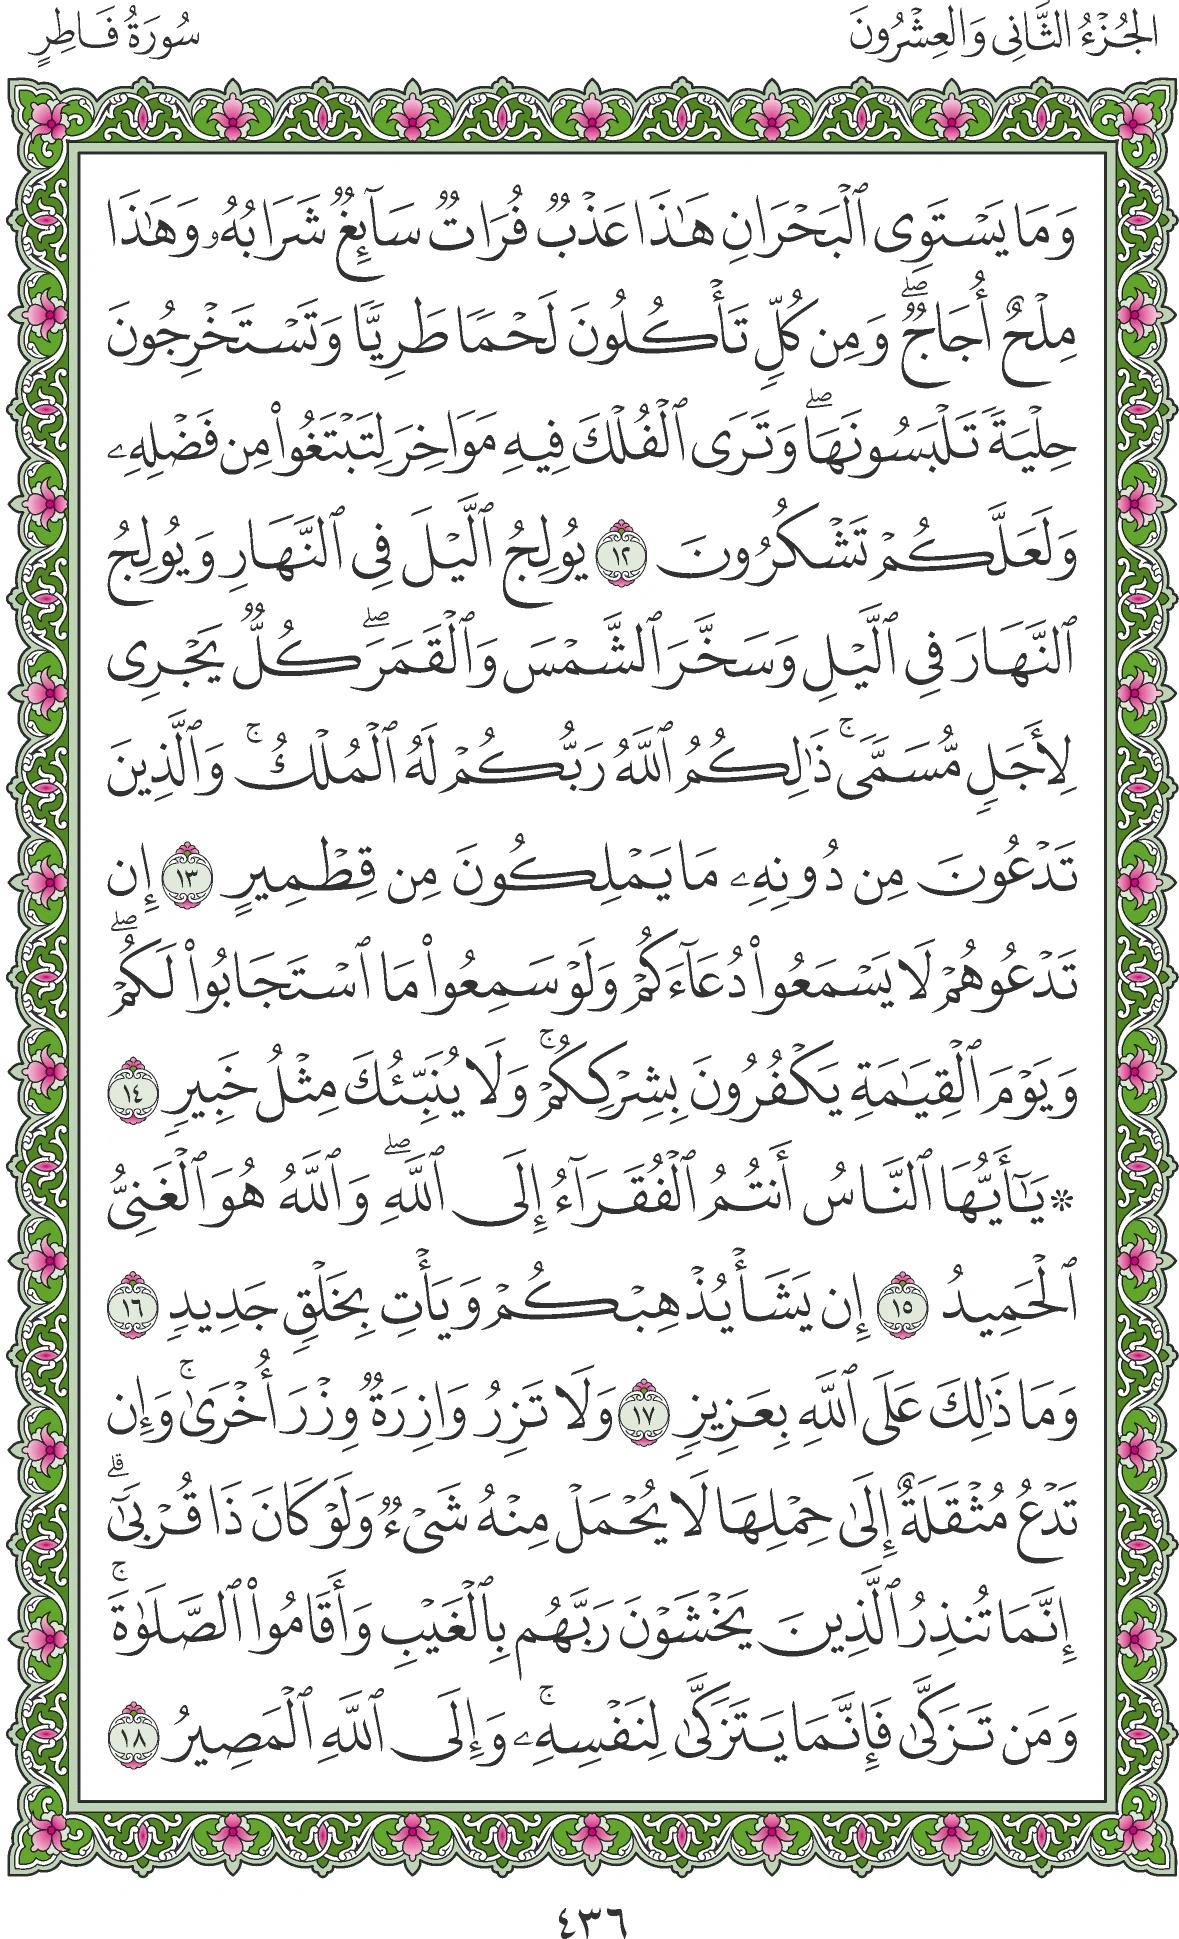 الجُزْءُ الثَّانِي وَالعِشْرُونَ
سُورَةُ فَاطِرٍ
وَمَا يَسْتَوِى ٱلْبَحْرَانِ هَٰذَا عَذْبٌ فُرَاتٌ سَآئِغٌ شَرَابُهُۥ وَهَٰذَا
مِلْحٌ أُجَاجٌ ۖ وَمِن كُلٍّ تَأْكُلُونَ لَحْمًا طَرِيًّا وَتَسْتَخْرِجُونَ
حِلْيَةً تَلْبَسُونَهَا ۖ وَتَرَى ٱلْفُلْكَ فِيهِ مَوَاخِرَ لِتَبْتَغُوا۟ مِن فَضْلِهِۦ
وَلَعَلَّكُمْ تَشْكُرُونَ ١٢ يُولِجُ ٱلَّيْلَ فِى ٱلنَّهَارِ وَيُولِجُ
ٱلنَّهَارَ فِى ٱلَّيْلِ وَسَخَّرَ ٱلشَّمْسَ وَٱلْقَمَرَ ۖ كُلٌّ يَجْرِى
لِأَجَلٍ مُّسَمًّى ۚ ذَٰلِكُمُ ٱللَّهُ رَبُّكُمْ لَهُ ٱلْمُلْكُ ۚ وَٱلَّذِينَ
تَدْعُونَ مِن دُونِهِۦ مَا يَمْلِكُونَ مِن قِطْمِيرٍ ١٣ إِن
تَدْعُوهُمْ لَا يَسْمَعُوا۟ دُعَآءَكُمْ وَلَوْ سَمِعُوا۟ مَا ٱسْتَجَابُوا۟ لَكُمْ ۖ
وَيَوْمَ ٱلْقِيَٰمَةِ يَكْفُرُونَ بِشِرْكِكُمْ ۚ وَلَا يُنَبِّئُكَ مِثْلُ خَبِيرٍ ١٤
۞ يَٰٓأَيُّهَا ٱلنَّاسُ أَنتُمُ ٱلْفُقَرَآءُ إِلَى ٱللَّهِ ۖ وَٱللَّهُ هُوَ ٱلْغَنِىُّ
ٱلْحَمِيدُ ١٥ إِن يَشَأْ يُذْهِبْكُمْ وَيَأْتِ بِخَلْقٍ جَدِيدٍ ١٦
وَمَا ذَٰلِكَ عَلَى ٱللَّهِ بِعَزِيزٍ ١٧ وَلَا تَزِرُ وَازِرَةٌ وِزْرَ أُخْرَىٰ ۚ وَإِن
تَدْعُ مُثْقَلَةٌ إِلَىٰ حِمْلِهَا لَا يُحْمَلْ مِنْهُ شَىْءٌ وَلَوْ كَانَ ذَا قُرْبَىٰٓ ۗ
إِنَّمَا تُنذِرُ ٱلَّذِينَ يَخْشَوْنَ رَبَّهُم بِٱلْغَيْبِ وَأَقَامُوا۟ ٱلصَّلَوٰةَ ۚ
وَمَن تَزَكَّىٰ فَإِنَّمَا يَتَزَكَّىٰ لِنَفْسِهِۦ ۚ وَإِلَى ٱللَّهِ ٱلْمَصِيرُ ١٨
٤٣٦